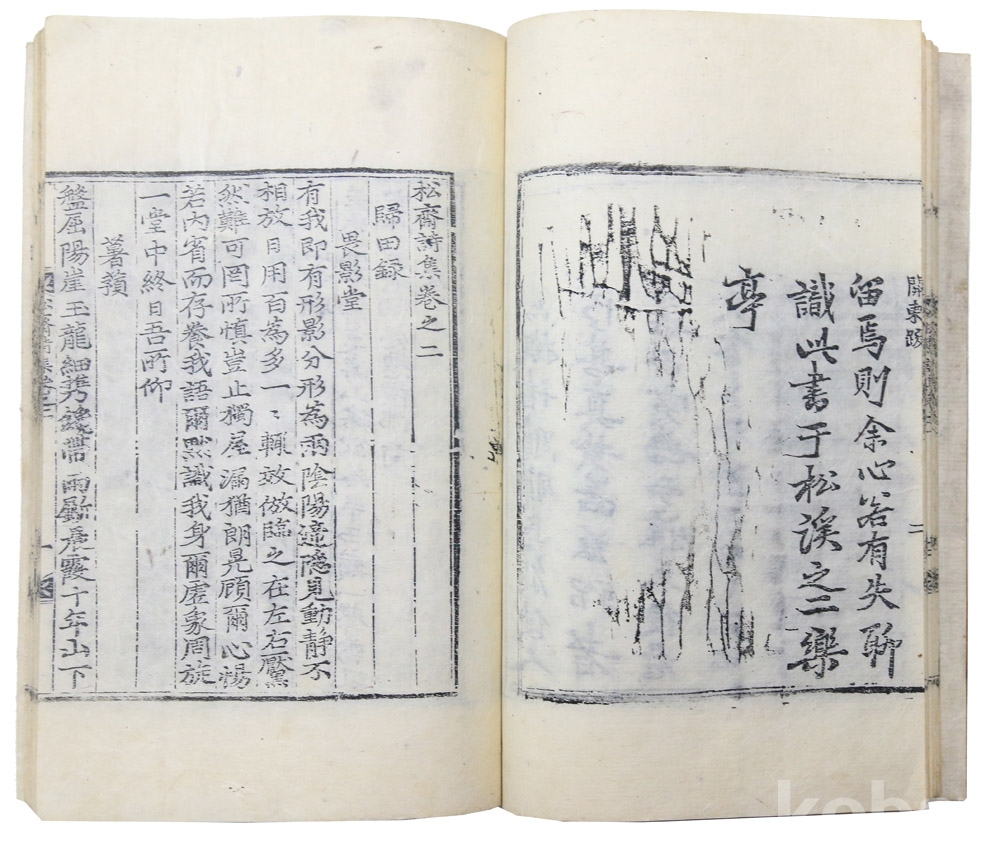 關東跋
二
留焉則余心若有失聊
識此書于松溪之二樂
亭
松齋詩集卷之二
歸田錄
畏影堂
有我即有形影分形為兩陰陽遞隱見動靜不
相放日用百為多一〻輒效倣臨之在左右黶
然難可罔所愼豈止獨屋漏猶朗晃顧爾心惕
若內省而存養我語爾默識我身爾虛象周旋
一堂中終日吾所仰
薯蕷
盤屈陽崖玉龍細 帶雨 晨霞十年山下